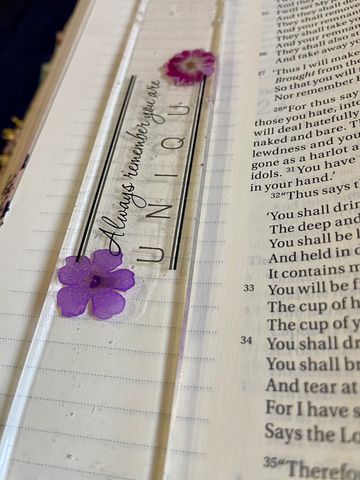 Always remember you are
UNIQU
And they
They shall
And your
They shall take
And your
26 They shall also
And take away
27 'Thus I will make
Brought from the
So that you will
Nor remember
28"For thus say
those you hate, in
will deal hatefully
naked and bare. T
lewdness and yo
gone as a harlot a
idols. 31You have
in your hand.'
32"Thus says
'You shall drin
The deep and
You shall be l
And held in d
It contains m
33 You will be fi
The cup of h
The cup of y
34 You shall dr
You shall br
And tear at
For I have s
Says the Lo
35"Therefo